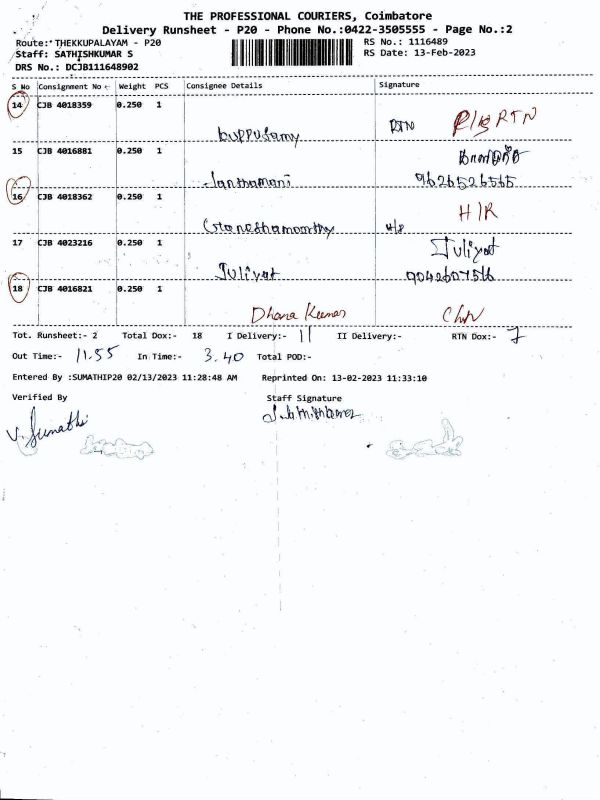 THE PROFESSIONAL COURIERS, Coimbatore
Delivery Runsheet - P20 - Phone No.:0422-3505555 - Page No.:2
Route: THEKKUPALAYAM - P20 RS No.: 1116489
Staff: SATHISHKUMAR S RS Date: 13-Feb-2023
DRS No.: DCJB111648902
S No Consignment No Weight PCS Consignee Details Signature
14 CJB 4018359 0.250 1
RTN RTN
15 CJB 4016881 0.250 1
9626526565
16 CJB 4018362 0.250 1
17 CJB 4023216 0.250 1 Juliyat
Juliyat
18 CJB 4016821 0.250 1
Dhana Kumar
Tot. Runsheet:- 2 Total Dox:- 18 I Delivery:- 11 II Delivery:- RTN Dox:- 7
Out Time:- 11.55 In Time:- 3.40 Total POD:-
Entered By :SUMATHIP20 02/13/2023 11:28:48 AM Reprinted On: 13-02-2023 11:33:10
Verified By Staff Signature
V. Sumathi